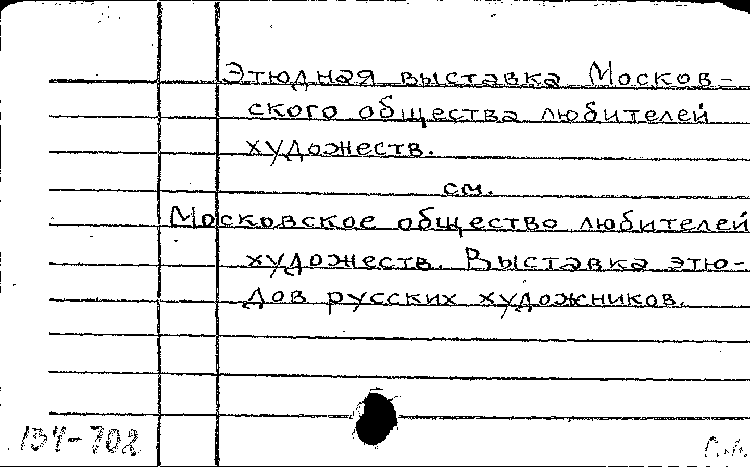 Этюдная выставка Москов-
ского общества любителей
художеств.
см.
Московское общество любителей
художеств. Выставка этю-
дов русских художников.
134-702